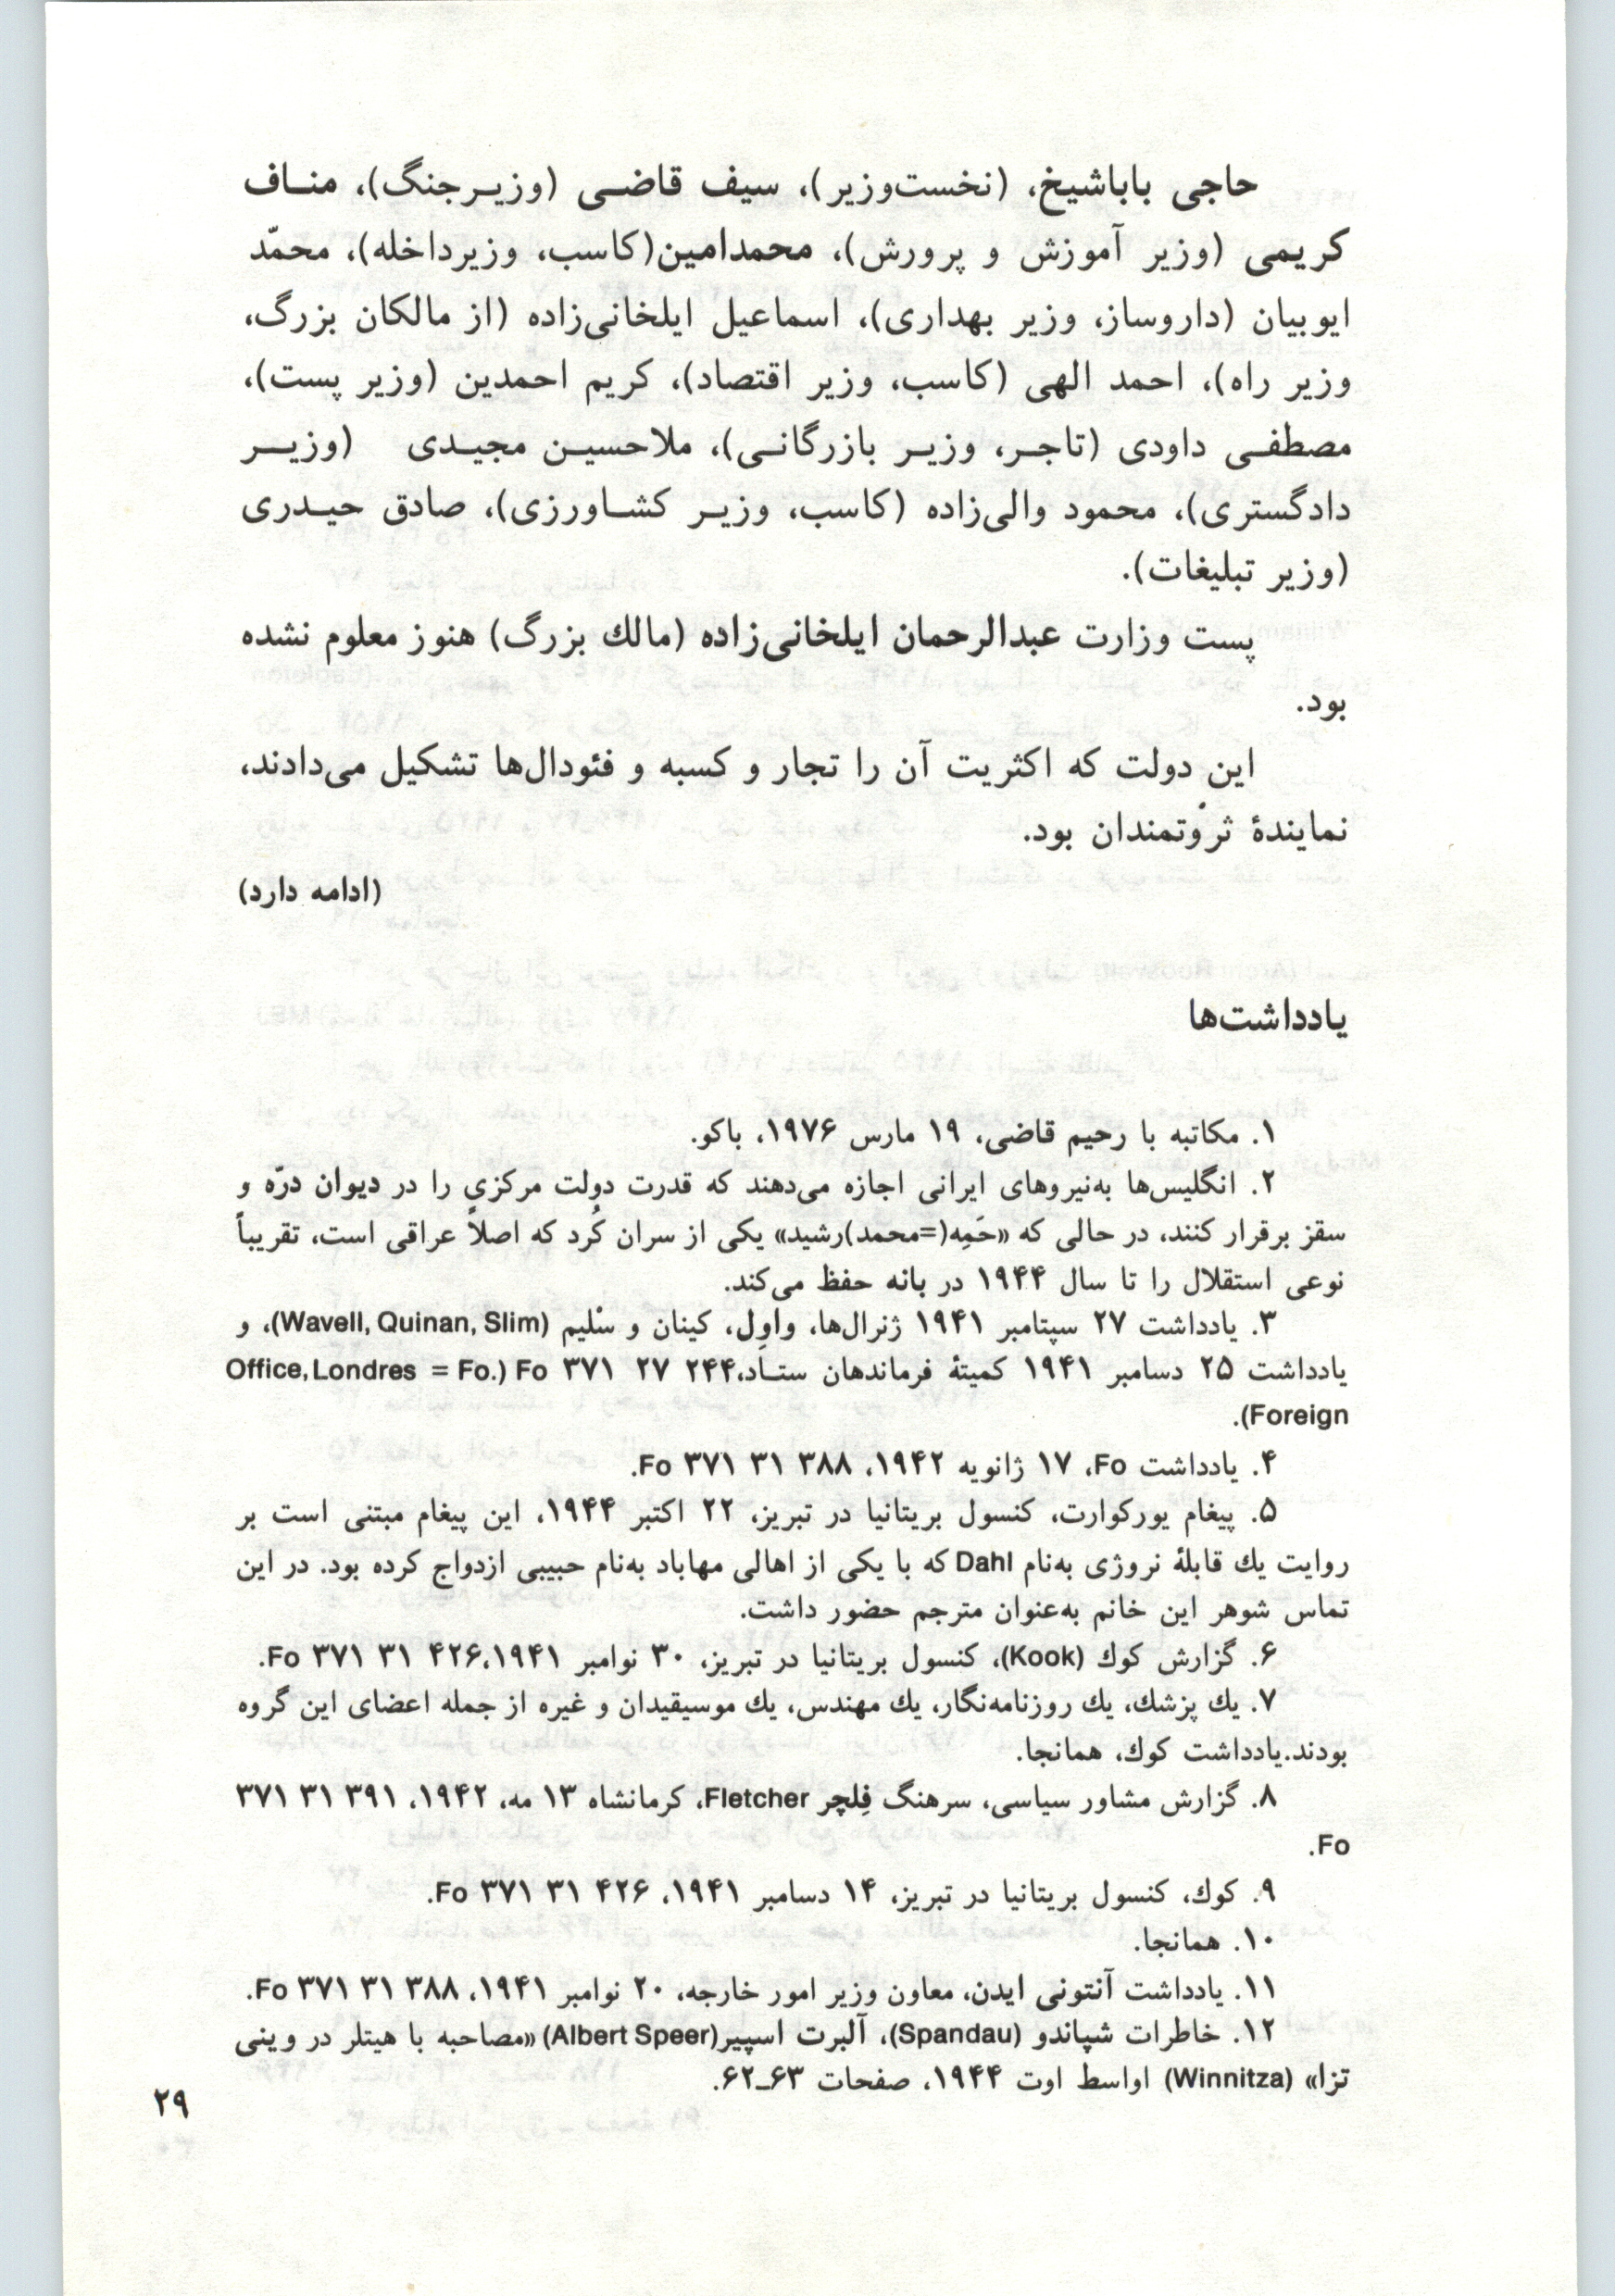 حاجی باباشیخ، (نخست‌وزیر)، سیف قاضی (وزیرجنگ)، مناف
کریمی (وزیر آموزش و پرورش)، محمدامین(کاسب، وزیرداخله)، محمّد
ایوبیان (داروساز، وزیر بهداری)، اسماعیل ایلخانی‌زاده (از مالکان بزرگ،
وزیر راه)، احمد الهی (کاسب، وزیر اقتصاد)، کریم احمدین (وزیر پست)،
مصطفی داودی (تاجر، وزیر بازرگانی)، ملاحسین مجیدی (وزیر
دادگستری)، محمود والی‌زاده (کاسب، وزیر کشاورزی)، صادق حیدری
(وزیر تبلیغات).
پست وزارت عبدالرحمان ایلخانی‌زاده (مالك بزرگ) هنوز معلوم نشده
بود.
این دولت که اکثریت آن را تجار و کسبه و فئودال‌ها تشکیل می‌دادند،
نمایندهٔ ثروتمندان بود.
(ادامه دارد)
یادداشت‌ها
۱. مکاتبه با رحیم قاضی، ۱۹ مارس ۱۹۷۶، باکو.
۲. انگلیس‌ها به‌نیروهای ایرانی اجازه می‌دهند که قدرت دولت مرکزی را در دیوان درّه و
سقز برقرار کنند، در حالی که «حَمِه(=محمد)رشید» یکی از سران کُرد که اصلاً عراقی است، تقریباً
نوعی استقلال را تا سال ۱۹۴۴ در بانه حفظ می‌کند.
۳. یادداشت ۲۷ سپتامبر ۱۹۴۱ ژنرال‌ها، واوِل، کینان و سْلیم (Wavell, Quinan, Slim)، و
یادداشت ۲۵ دسامبر ۱۹۴۱ کمیتهٔ فرماندهان ستاد،۲۴۴ ۲۷ ۳۷۱ Fo (.Office, Londres = Fo
Foreign).
۴. یادداشت Fo، ۱۷ ژانویه ۱۹۴۲، ۳۸۸ ۳۱ ۳۷۱ Fo.
۵. پیغام یورکوارت، کنسول بریتانیا در تبریز، ۲۲ اکتبر ۱۹۴۴، این پیغام مبتنی است بر
روایت یك قابلهٔ نروژی به‌نام Dahl که با یکی از اهالی مهاباد به‌نام حبیبی ازدواج کرده بود. در این
تماس شوهر این خانم به‌عنوان مترجم حضور داشت.
۶. گزارش کوك (Kook)، کنسول بریتانیا در تبریز، ۳۰ نوامبر ۱۹۴۱،۴۲۶ ۳۱ ۳۷۱ Fo.
۷. یك پزشك، یك روزنامه‌نگار، یك مهندس، یك موسیقیدان و غیره از جمله اعضای این گروه
بودند.یادداشت کوك، همانجا.
۸. گزارش مشاور سیاسی، سرهنگ فِلچر Fletcher، کرمانشاه ۱۳ مه، ۱۹۴۲، ۳۹۱ ۳۱ ۳۷۱
Fo.
۹. کوك، کنسول بریتانیا در تبریز، ۱۴ دسامبر ۱۹۴۱، ۴۲۶ ۳۱ ۳۷۱ Fo.
۱۰. همانجا.
۱۱. یادداشت آنتونی ایدن، معاون وزیر امور خارجه، ۲۰ نوامبر ۱۹۴۱، ۳۸۸ ۳۱ ۳۷۱ Fo.
۱۲. خاطرات شپاندو (Spandau)، آلبرت اسپیر(Albert Speer) «مصاحبه با هیتلر در وینی
تزا» (Winnitza) اواسط اوت ۱۹۴۴، صفحات ۶۳ـ۶۲.
۲۹